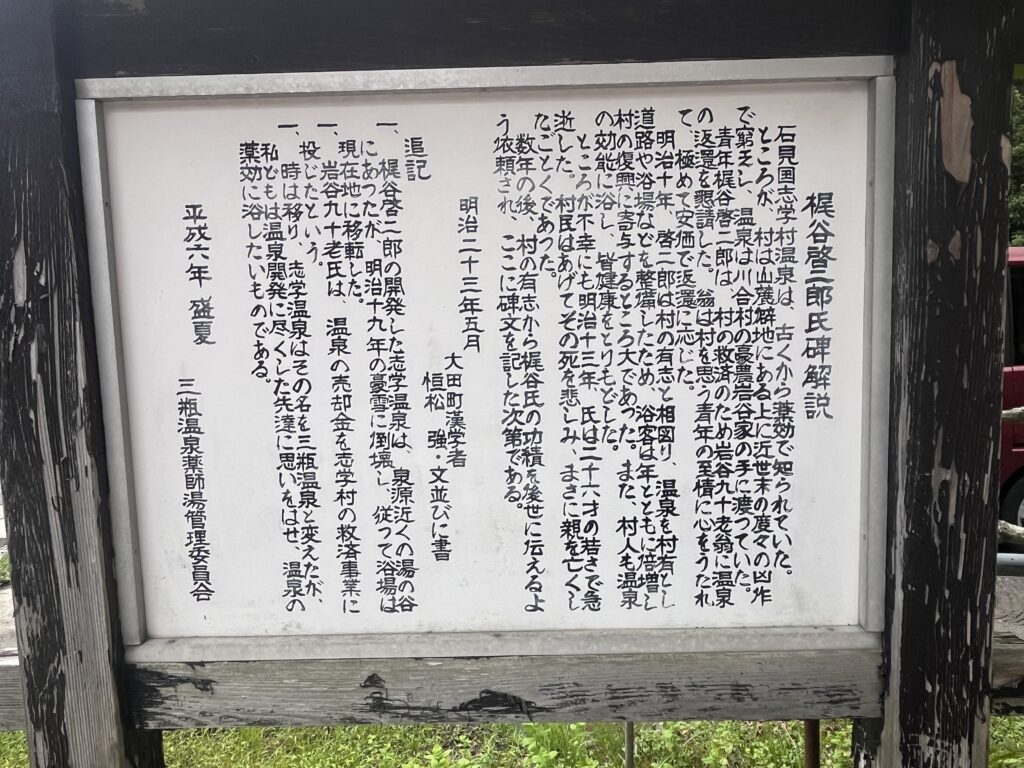 梶谷啓二郎氏碑解説
石見国志学村温泉は、古くから薬効で知られていた。
ところが、村は山麓僻地にある上に近世末の度々の凶作
で窮乏し、温泉は川合村の豪農岩谷家の手に渡っていた。
青年梶谷啓二郎は、村の救済のため岩谷九十老翁に温泉
の返還を懇請した。翁は村を思う青年の至情に心をうたれ
て、極めて安価で返還に応じた。
明治十年、啓二郎は村の有志と相図り、温泉を村有とし
道路や浴場などを整備したため、浴客は年とともに倍増し
村の復興に寄与するところ大であった。また、村人も温泉
の効能に浴し、皆健康をとりもどした。
ところが不幸にも明治十三年、氏は二十六才の若さで急
逝した。村民はあげてその死を悲しみ、まさに親を亡くし
たごとくであった。
数年の後、村の有志から梶谷氏の功積を後世に伝えるよ
う依頼され、ここに碑文を記した次第である。
明治二十三年五月
大田町漢学者
恒松 強・文並びに書
追記
一、梶谷啓二郎の開発した志学温泉は、泉源近くの湯の谷
にあったが、明治十九年の豪雪に倒壊し、従って浴場は
現在地に移転した。
一、岩谷九十老氏は、温泉の売却金を志学村の救済事業に
投じたという。
一、時は移り、志学温泉はその名を三瓶温泉と変えたが、
私どもは温泉開発に尽くした先達に思いをはせ、温泉の
薬効に浴したいものである。
平成六年 盛夏
三瓶温泉薬師湯管理委員会